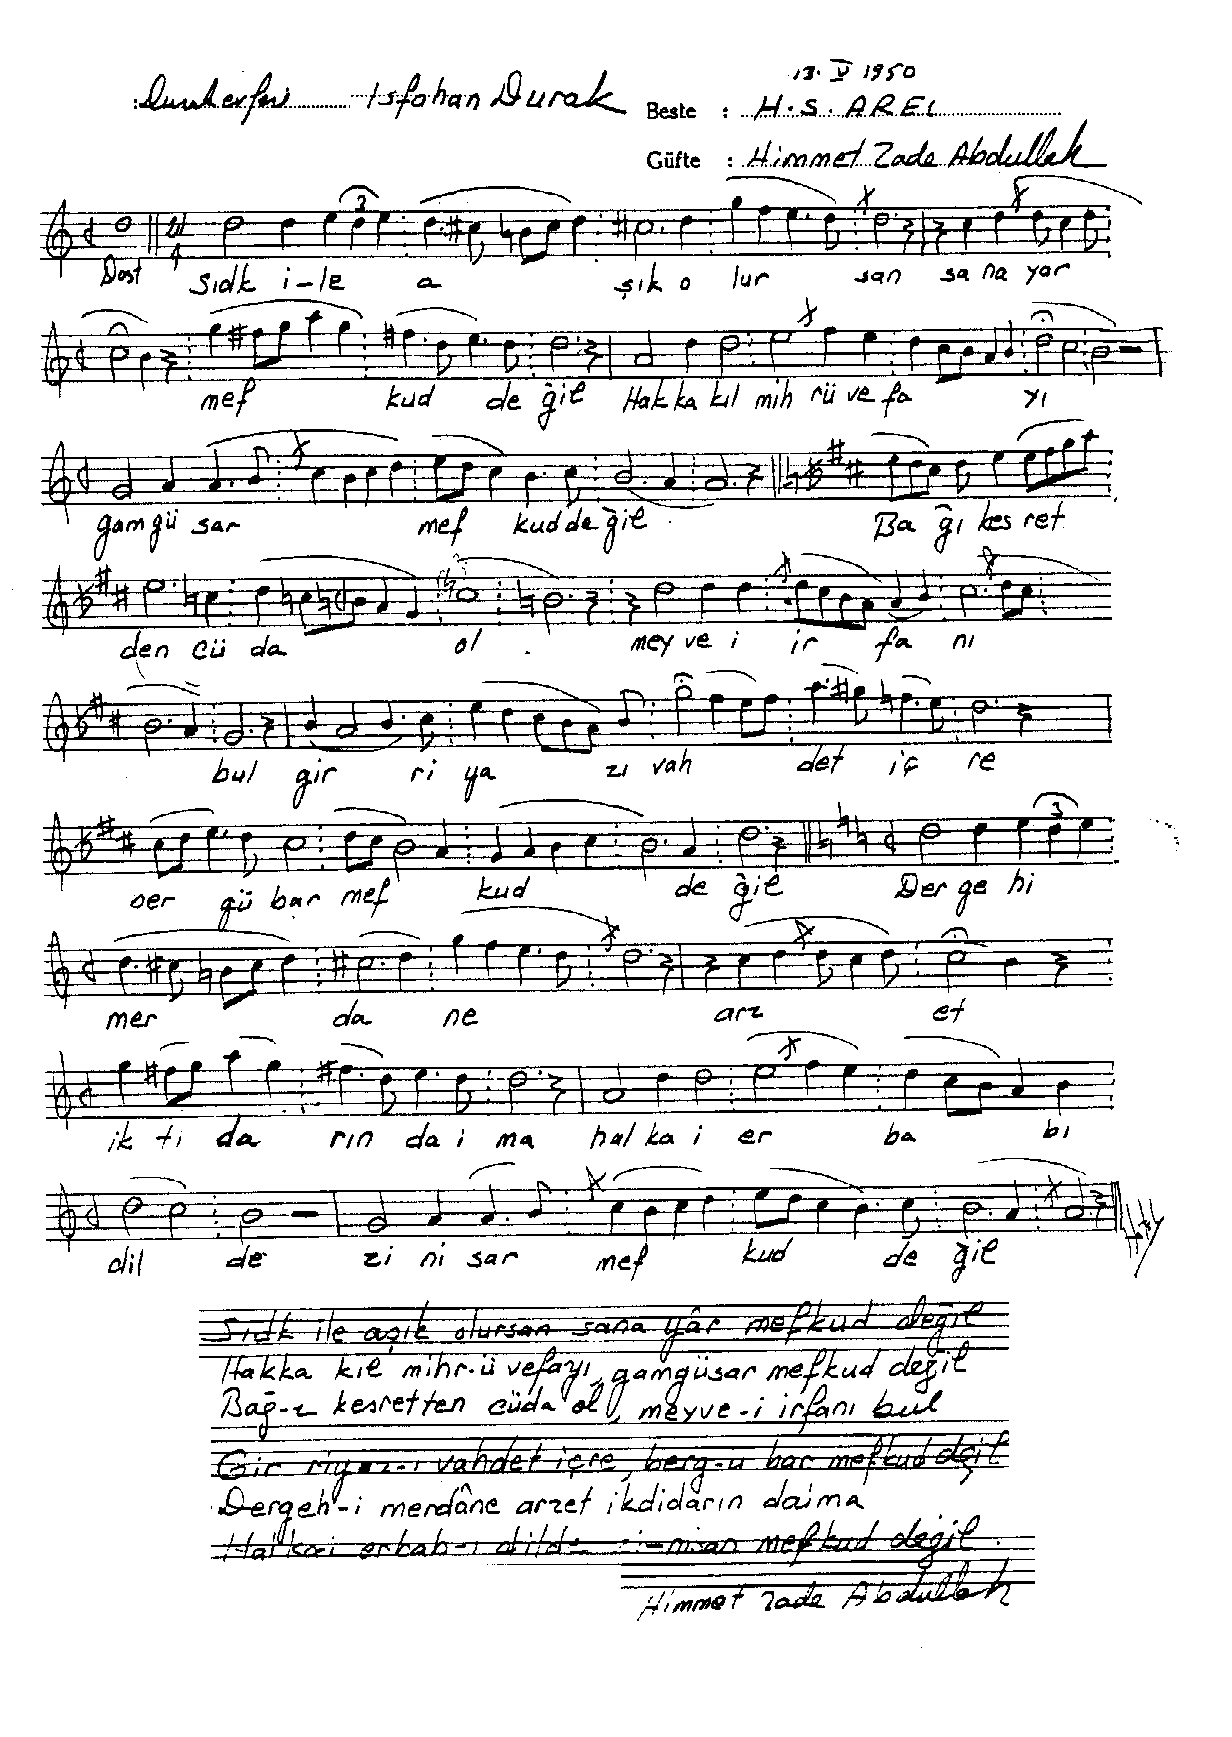 13. V 1950
: Durakevferi Isfahan Durak Beste : H.S. AREL
Güfte : Himmet Zade Abdullah
3
Dost sıdk i-le a şık o lur san sa na yar
mef kud de ğil Hak ka kıl mih rü ve fa yı
gam gü sar mef kud de ğil Ba ğı kes ret
den cü da ol mey ve i ir fa nı
bul gir ri ya zı vah det iç re
3
ber gü bar mef kud de ğil Der ge hi
mer da ne arz et
ik ti da rın da i ma hal ka i er ba bı
dil de zi ni sar mef kud de ğil
Sıdk ile aşık olursan sana yâr mefkud değil
Hakka kıl mihr-ü vefayı, gamgüsar mefkud değil
Bağ-ı kesretten cüda ol, meyve-i irfanı bul
Gir riyaz-ı vahdet içre, berg-u bar mefkud değil
Dergeh-i merdâne arzet ikdidarın daima
Halka-i erbab-ı dilde mefkud değil.
Himmet Zade Abdullah